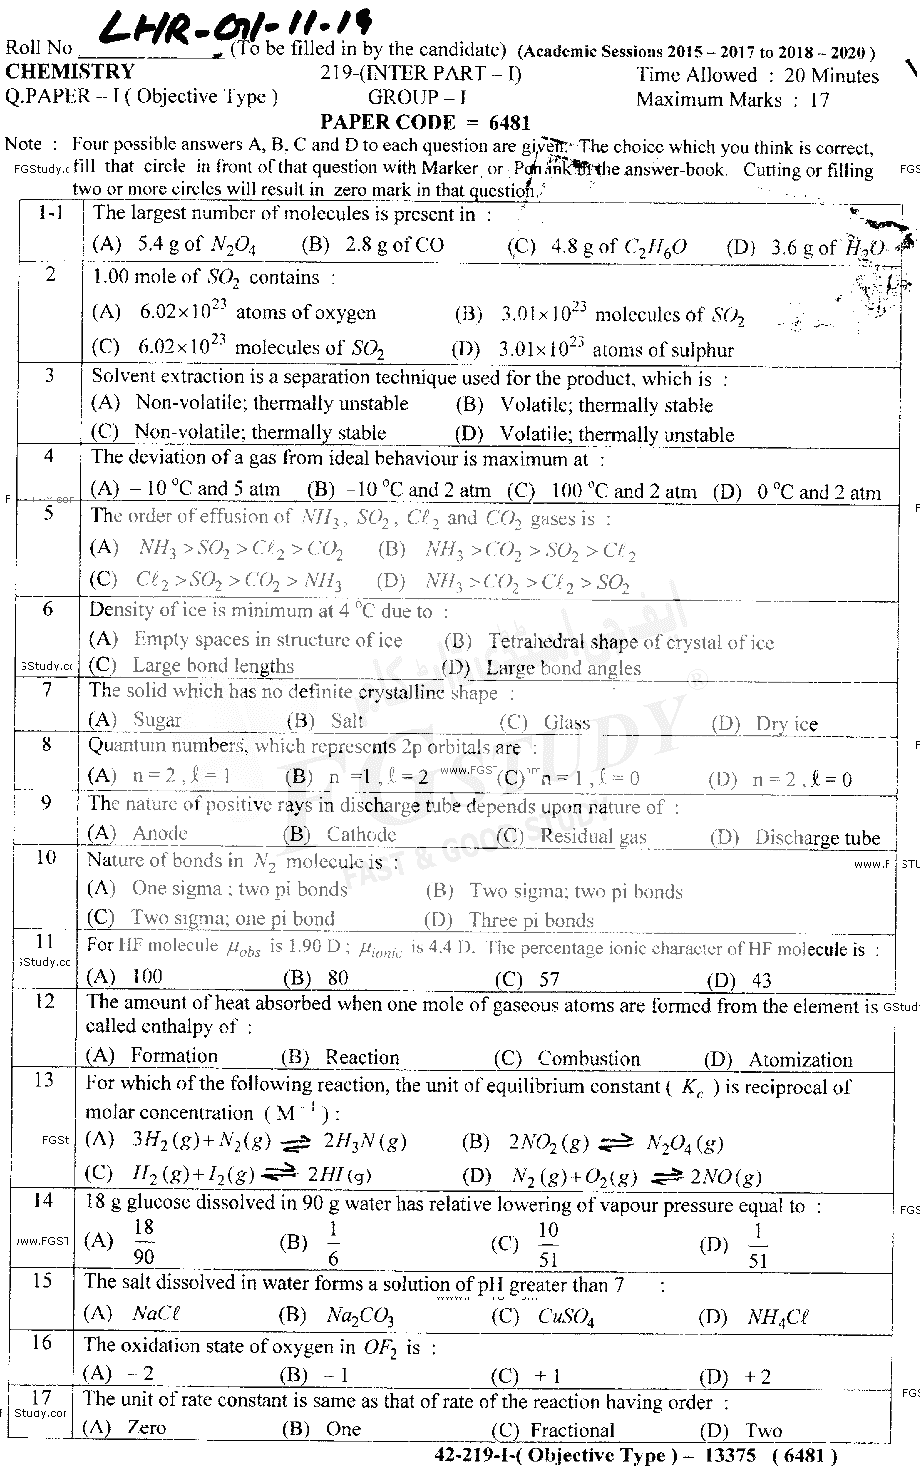 LHR-G1-11-19
Roll No ________ (To be filled in by the candidate) (Academic Sessions 2015 – 2017 to 2018 – 2020)
CHEMISTRY 219-(INTER PART – I) Time Allowed : 20 Minutes
Q.PAPER – I ( Objective Type ) GROUP – I Maximum Marks : 17
PAPER CODE = 6481
Note : Four possible answers A, B, C and D to each question are given. The choice which you think is correct,
fill that circle in front of that question with Marker or Pen ink in the answer-book. Cutting or filling
two or more circles will result in zero mark in that question.
1-1 The largest number of molecules is present in :
(A) 5.4 g of N₂O₄ (B) 2.8 g of CO (C) 4.8 g of C₂H₆O (D) 3.6 g of H₂O
2 1.00 mole of SO₂ contains :
(A) 6.02×10²³ atoms of oxygen (B) 3.01×10²³ molecules of SO₂
(C) 6.02×10²³ molecules of SO₂ (D) 3.01×10²³ atoms of sulphur
3 Solvent extraction is a separation technique used for the product, which is :
(A) Non-volatile; thermally unstable (B) Volatile; thermally stable
(C) Non-volatile; thermally stable (D) Volatile; thermally unstable
4 The deviation of a gas from ideal behaviour is maximum at :
(A) – 10 °C and 5 atm (B) –10 °C and 2 atm (C) 100 °C and 2 atm (D) 0 °C and 2 atm
5 The order of effusion of NH₃, SO₂, Cℓ₂ and CO₂ gases is :
(A) NH₃ > SO₂ > Cℓ₂ > CO₂ (B) NH₃ > CO₂ > SO₂ > Cℓ₂
(C) Cℓ₂ > SO₂ > CO₂ > NH₃ (D) NH₃ > CO₂ > Cℓ₂ > SO₂
6 Density of ice is minimum at 4 °C due to :
(A) Empty spaces in structure of ice (B) Tetrahedral shape of crystal of ice
(C) Large bond lengths (D) Large bond angles
7 The solid which has no definite crystalline shape :
(A) Sugar (B) Salt (C) Glass (D) Dry ice
8 Quantum numbers, which represents 2p orbitals are :
(A) n = 2 , ℓ = 1 (B) n =1 , ℓ = 2 (C) n = 1 , ℓ = 0 (D) n = 2 , ℓ = 0
9 The nature of positive rays in discharge tube depends upon nature of :
(A) Anode (B) Cathode (C) Residual gas (D) Discharge tube
10 Nature of bonds in N₂ molecule is :
(A) One sigma ; two pi bonds (B) Two sigma; two pi bonds
(C) Two sigma; one pi bond (D) Three pi bonds
11 For HF molecule μobs is 1.90 D ; μionic is 4.4 D. The percentage ionic character of HF molecule is :
(A) 100 (B) 80 (C) 57 (D) 43
12 The amount of heat absorbed when one mole of gaseous atoms are formed from the element is
called enthalpy of :
(A) Formation (B) Reaction (C) Combustion (D) Atomization
13 For which of the following reaction, the unit of equilibrium constant ( Kc ) is reciprocal of
molar concentration ( M⁻¹ ) :
(A) 3H₂(g)+N₂(g) ⇌ 2H₃N(g) (B) 2NO₂(g) ⇌ N₂O₄(g)
(C) H₂(g)+I₂(g) ⇌ 2HI(g) (D) N₂(g)+O₂(g) ⇌ 2NO(g)
14 18 g glucose dissolved in 90 g water has relative lowering of vapour pressure equal to :
(A) 18/90 (B) 1/6 (C) 10/51 (D) 1/51
15 The salt dissolved in water forms a solution of pH greater than 7 :
(A) NaCℓ (B) Na₂CO₃ (C) CuSO₄ (D) NH₄Cℓ
16 The oxidation state of oxygen in OF₂ is :
(A) – 2 (B) – 1 (C) + 1 (D) + 2
17 The unit of rate constant is same as that of rate of the reaction having order :
(A) Zero (B) One (C) Fractional (D) Two
42-219-I-( Objective Type ) – 13375 ( 6481 )
FGSTUDY
FAST & GOOD STUDY